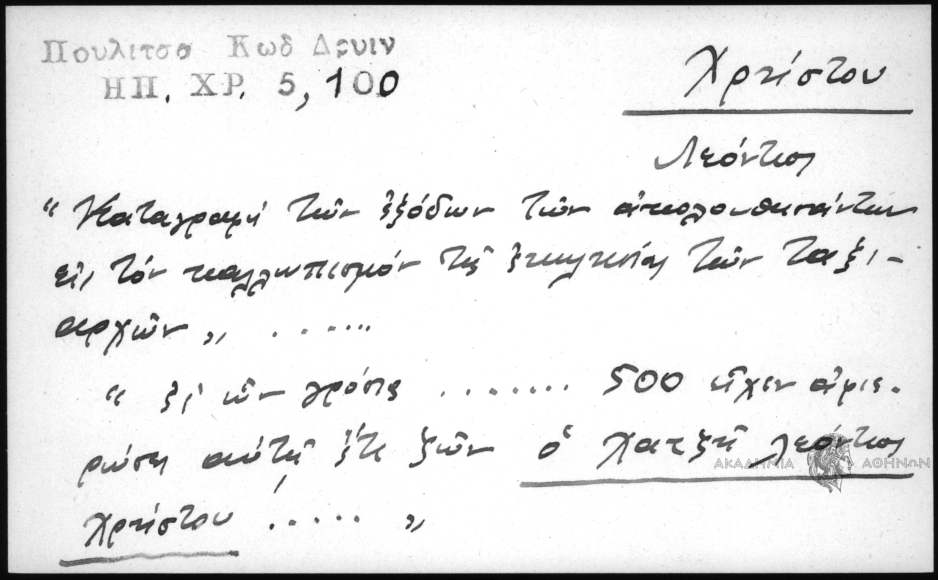 Πουλιτσα Κωδ Δρυιν
ΗΠ. ΧΡ. 5, 100
Χρήστου
Λεόντιος
“ Καταγραφή τῶν ἐξόδων τῶν ἀκολουθησάντων
εἰς τόν καλλωπισμόν τῆς ἐκκλησίας τῶν Ταξι-
αρχῶν „ .......
“ ἐξ ὧν γρόσια ........ 500 εἶχεν ἀφιε-
ρώσει αὐτῇ ἔτι ζῶν ὁ χατζῆ Λεόντιος
Χρήστου ..... „
ΑΚΑΔΗΜΙΑ ΑΘΗΝΩΝ